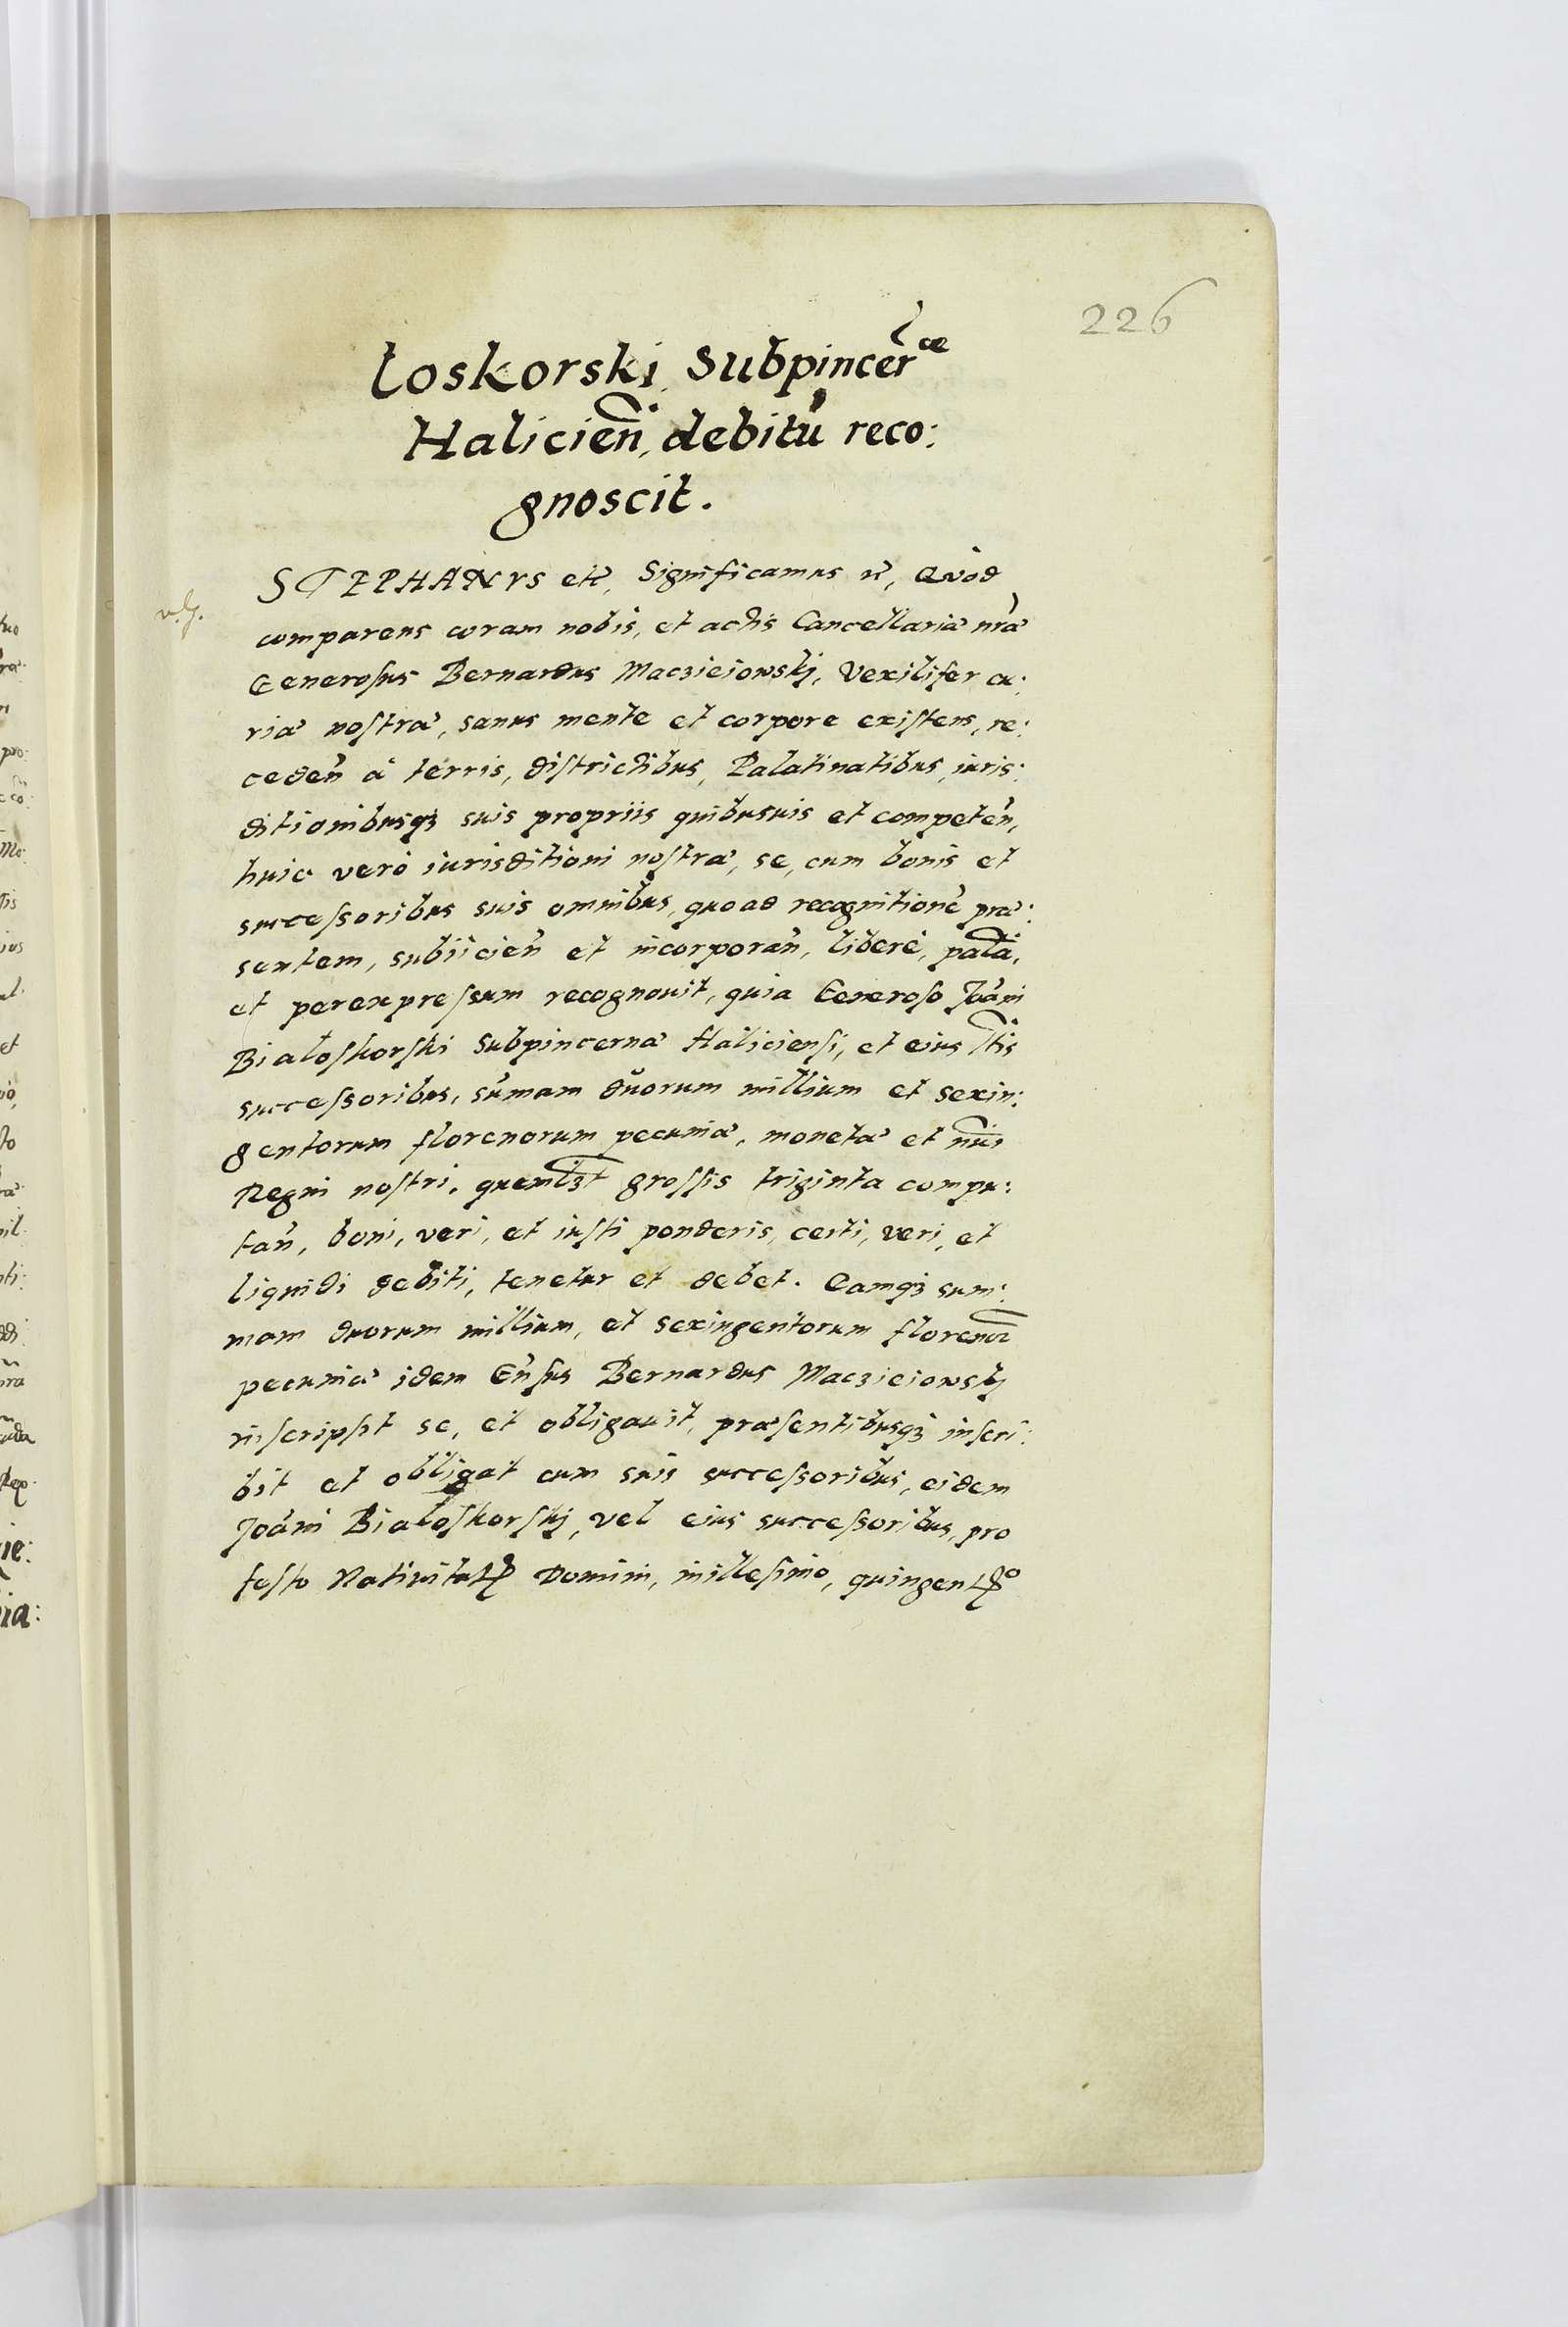 226
loskorski Subpincer̃æ
Halicien̄, debitū reco:
gnoscit.
STEPHANVS etc̃, Significamus rc̃, Quòd
comparens coram nobis, et actis Cancellariæ nr̃æ
Generosus Bernardus Maczieiowskj, Vexilifer cu:
riæ nostræ, sanus mente et corpore existens, re:
ceden̄ à terris, districtibus, Palatinatibus, iuris:
ditionibusqȝ suis propriis quibusuis et competen̄,
huic verò iurisditioni nostræ, se, cum bonis et
successoribus suis omnibus, quoad recognitionē præ:
sentem, subiicien̄ et incorporan̄, liberè, palā,
et perexpressum recognouit, quia Generoso Joāni
Bialoskorski Subpincernæ Haliciensi, et eius ltis
successoribus, sūmam duorum millium et sexin:
gentorum florenorum pecuniæ, monetæ et nūi
Regni nostri, quemlȝt grossis triginta compu:
tan̄, boni, veri, et iusti ponderis, certi, veri, et
liquidi debiti, tenetur et debet. Eamqȝ sum:
mam duorum millium, et sexingentorum florenoꝝ
pecuniæ idem Gn̄sus Bernardus Maczieiowskj
inscripsit se, et obligauit, præsentibusqȝ inscri:
bit et obligat cum suis successoribus, eidem
Joāni Bialoskorskj, vel eius successoribus, pro
festo Natiuitatꝭ Domini, millesimo, quingentꝭo